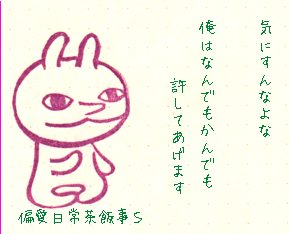 気にすんなよな
俺はなんでもかんでも
許してあげます
偏愛日常茶飯事S